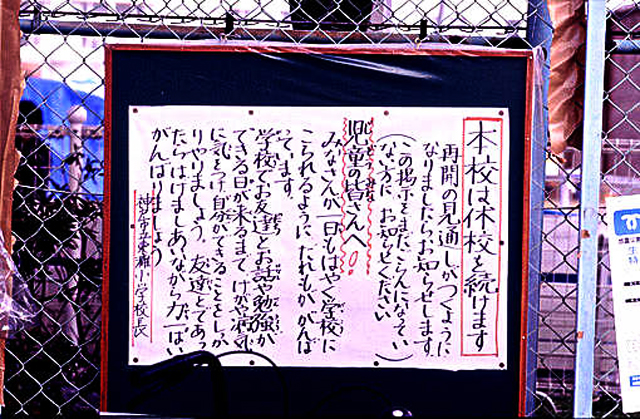 本校は休校を続けます
再開の見通しがつくように
なりましたらお知らせします
(この掲示をまだごらんになってい
ない方に お知らせください)
児童の皆さんへ!!
みなさんが一日もはやく学校に
こられるように だれもががんば
っています。
学校でお友達とお話や勉強が
できる日が来るまで けがや病気
に気をつけ自分ができることをしっか
りやりましょう。友達とであっ
たらはげましあいながら力一ぱい
がんばりましょう
神戸市立東灘小学校長